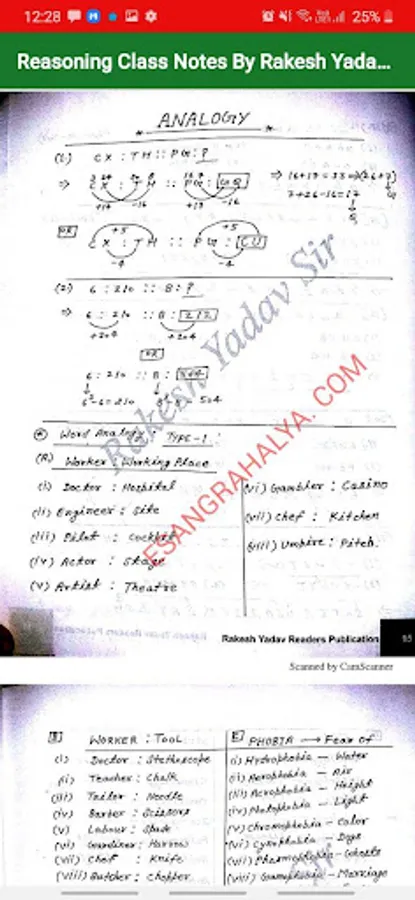 12:28
25%
Reasoning Class Notes By Rakesh Yada...
ANALOGY
(1) CX : TH :: PG : ?
⇒ CX : TH :: PG : GQ ⇒ 16+17 = 33 ⇒ (26+7)
+17 -16 +17 -16 7+26-16=17
OR
+5 +5
CX : TH :: PG : CU
-4 -4
(2) 6 : 210 :: 8 : ?
⇒ 6 : 210 :: 8 : 212
+204 +204
OR
6 : 210 :: 8 : 504
6³-6=210 8³-8 = 504
Word Analogy TYPE-1 :
(A) Worker : Working Place
(i) Doctor : Hospital
(ii) Engineer : Site
(iii) Pilot : Cockpit
(iv) Actor : Stage
(v) Artist : Theatre
(vi) Gambler : Casino
(vii) Chef : Kitchen
(viii) Umpire : Pitch.
Rakesh Yadav Sir
ESANGRAHALYA. COM
Rakesh Yadav Readers Publication 95
Scanned by CamScanner
B WORKER : TOOL
(i) Doctor : Stethoscope
(ii) Teacher : Chalk
(iii) Tailor : Needle
(iv) Barber : Scissors
(v) Labour : Spade
(vi) Gardiner : Harrow
(vii) Chef : Knife
(viii) Butcher : Chopper
E PHOBIA → Fear of
(i) Hydrophobia – Water
(ii) Aerophobia – Air
(iii) Acrophobia – Height
(iv) Photophobia – Light
(v) Chromophobia – Color
(vi) Cynophobia – Dogs
(vii) Phasmophobia – Ghosts
(viii) Gamophobia – Marriage
Sir